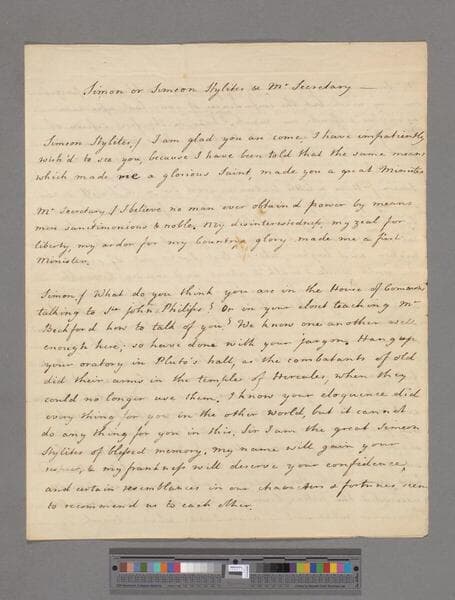 Simon or Simeon Stylites & Mr Secretary —
Simeon Stylites,/ I am glad you are come, I have impatiently
wish'd to see you, because I have been told that the same means
which made me a glorious Saint, made you a great Minister.
Mr Secretary / I believe no man ever obtained power by means
more sanctimonious & noble. My disinterestedness, my zeal for
liberty, my ardor for my Country's glory made me a first
Minister.
Simon / What do you think you are in the House of Commons
talking to Sir John Philips? Or in your closet teaching Mr
Beckford how to talk of you? We know one another well
enough here, so have done with your jargon. Hang up
your oratory in Pluto's hall, as the combatants of old
did their arms in the temple of Hercules, when they
could no longer use them. I know your eloquence did
every thing for you in the other world, but it cannot
do any thing for you in this. Sir I am the great Simeon
Stylites of blessed memory. My name will gain your
& my frankness will deserve your confidence,
and certain resemblances in our characters & fortunes seem
to recommend us to each other.